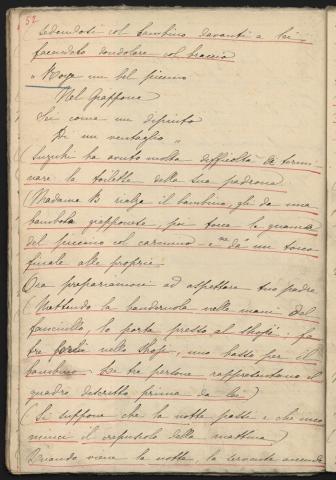 52
sedendosi col bambino davanti a lei
facendolo dondolare col braccio
"Moya un bel picino
Nel Giappone
Sei come un dipinto
Di un ventaglio"
(Suzuki ha avuto molta difficoltà a termi-
nare la toilette della sua padrona
(Madama B rialza il bambino, gli dà una
bambola giapponese, poi tocca le guancie
del piccino col carmino e ne dà un tocco
finale alle proprie
Ora prepariamoci ad aspettare tuo padre
(Mettendo la banderuola nelle mani del
fanciullo, lo porta presso al Shosi, fa
tre nello Shosi, uno basso per il
bambino. Le tre persone rappresentano il
quadro descritto prima da lei)
(Si suppone che la notte passi e che inco-
minci il crepuscolo della mattina)
Quando viene la notte, la servente accende